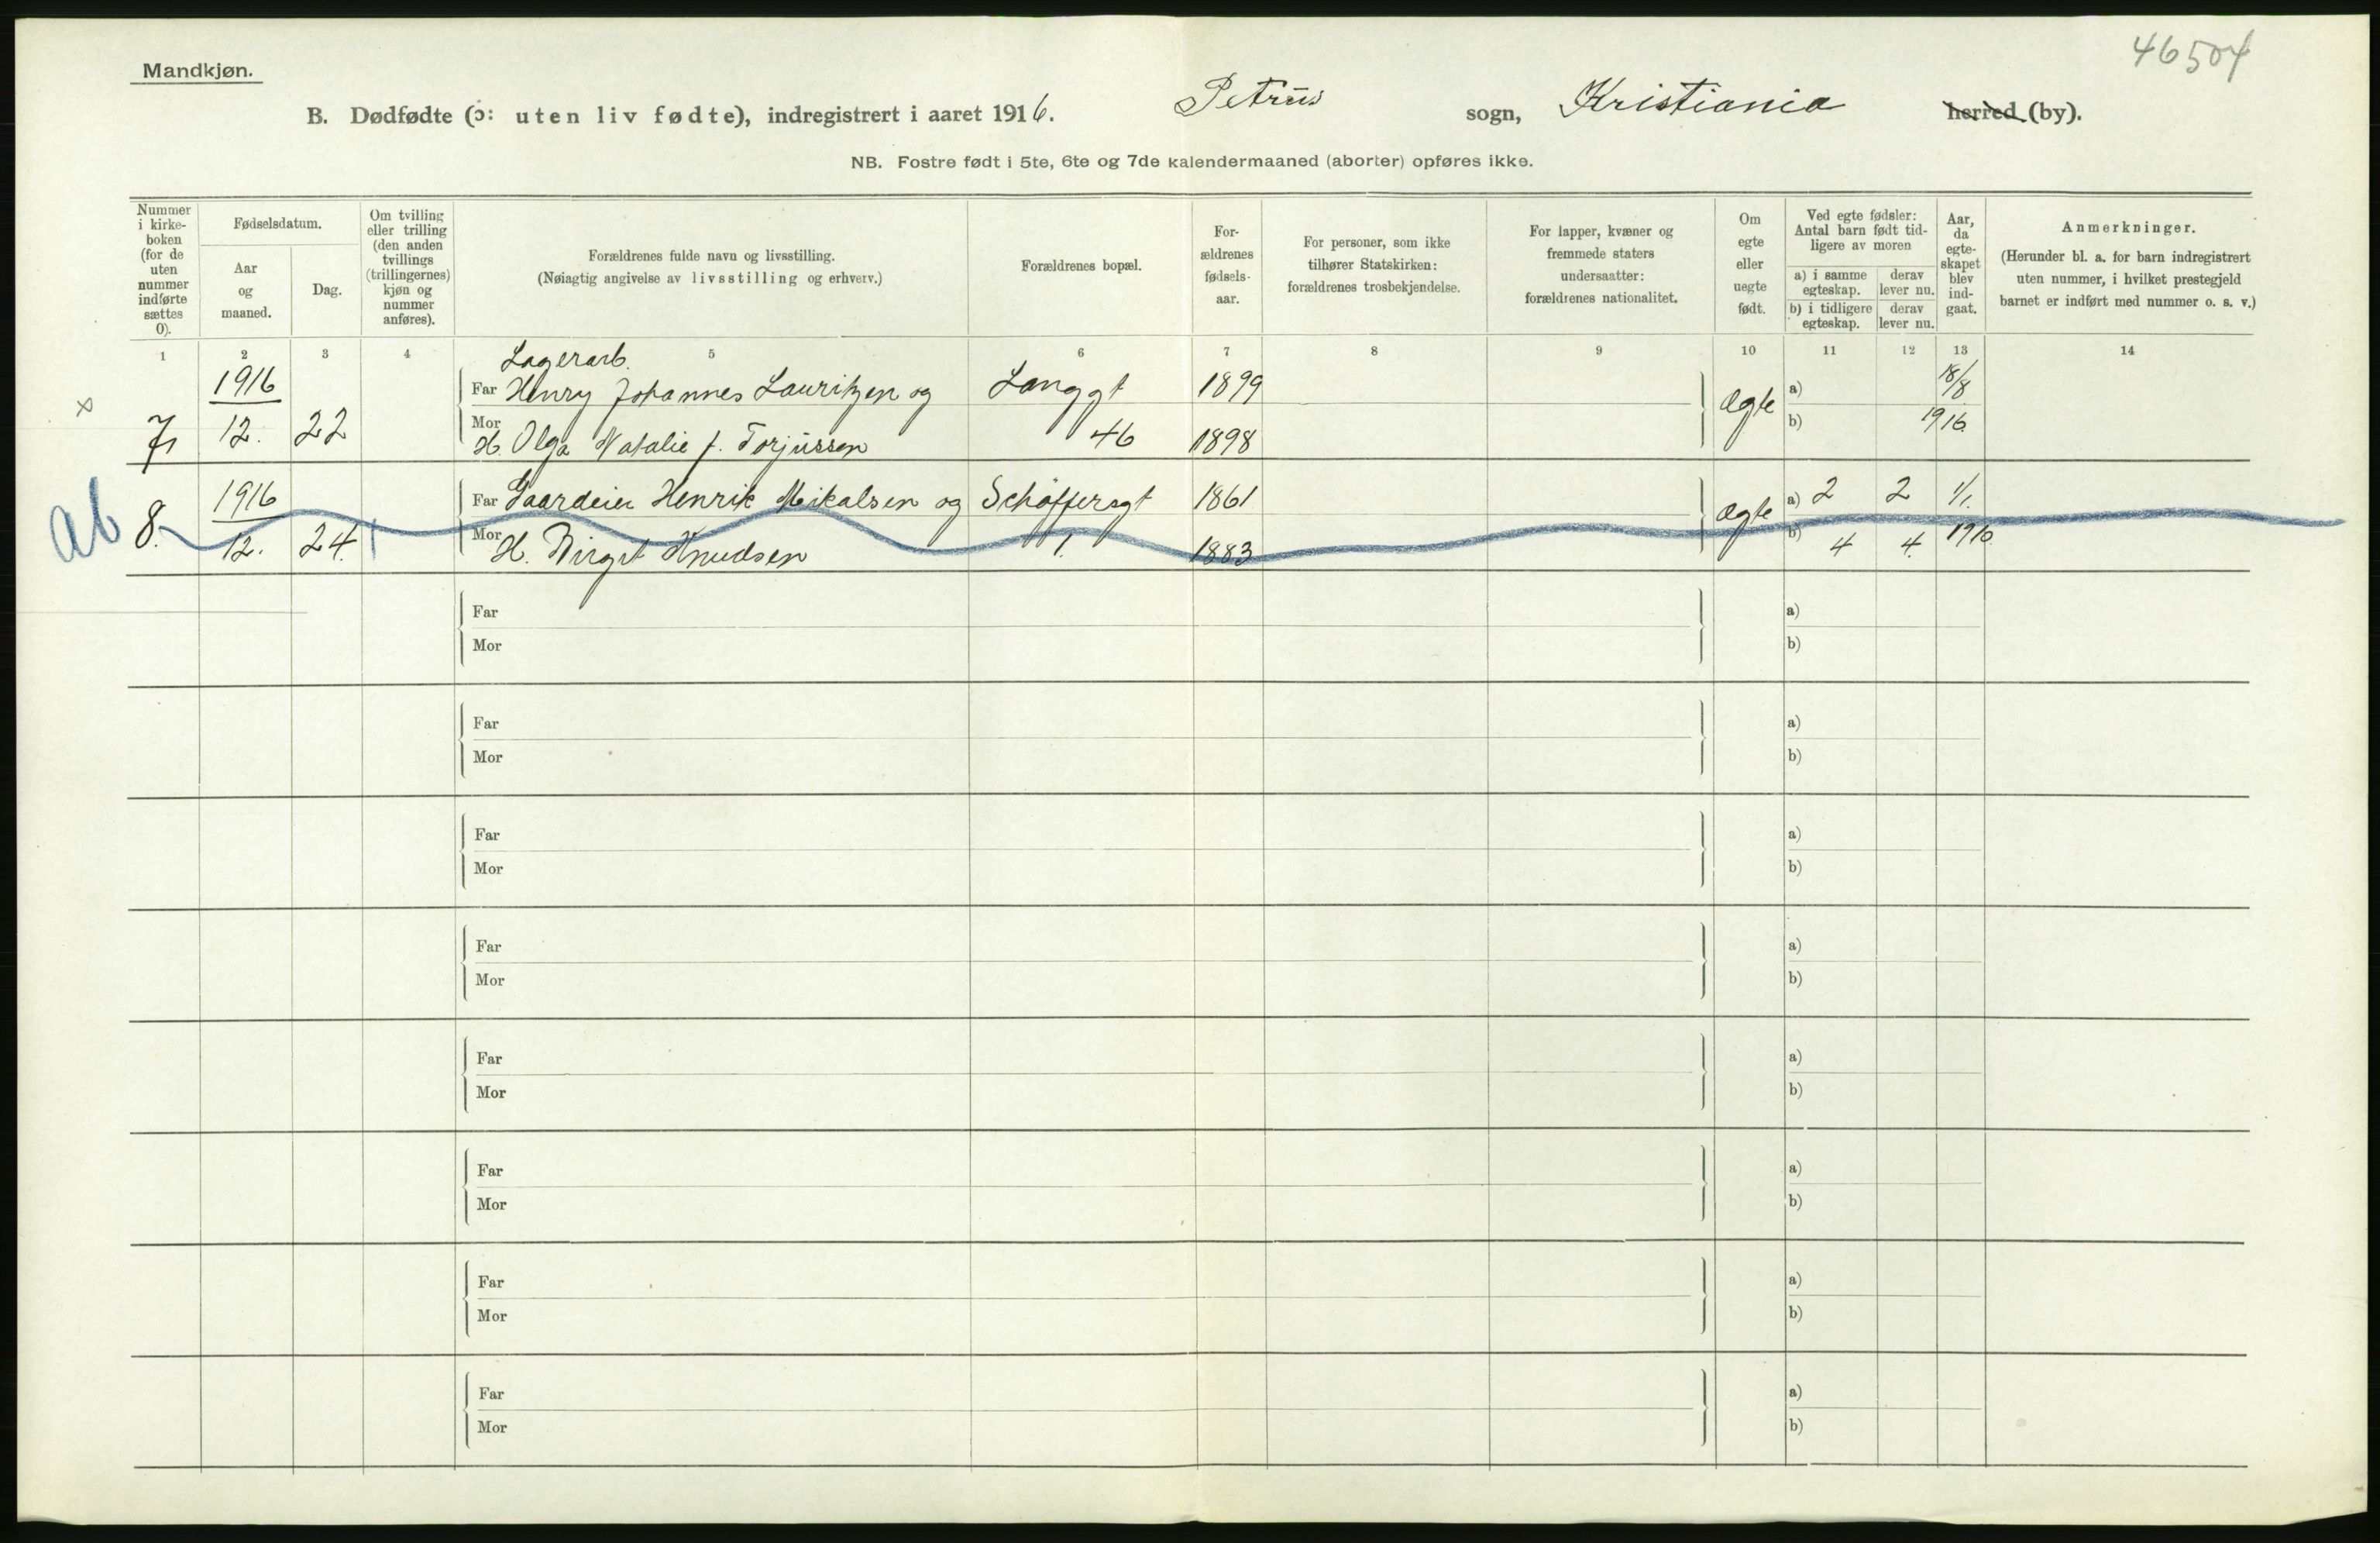 46504
Mandkjøn.
B. Dødfødte (ɔ: uten liv fødte), indregistrert i aaret 1916. Petrus sogn, Kristiania herred (by).
NB. Fostre født i 5te, 6te og 7de kalendermaaned (aborter) opføres ikke.
Nummer i kirke-boken (for de uten nummer indførte sættes 0).
Fødselsdatum.
Aar og maaned.
Dag.
Om tvilling eller trilling (den anden tvillings (trillingernes) kjøn og nummer anføres).
Forældrenes fulde navn og livsstilling.
(Nøiagtig angivelse av livsstilling og erhverv.)
Forældrenes bopæl.
For-ældrenes fødsels-aar.
For personer, som ikke tilhører Statskirken: forældrenes trosbekjendelse.
For lapper, kvæner og fremmede staters undersaatter: forældrenes nationalitet.
Om egte eller uegte født.
Ved egte fødsler: Antal barn født tid-ligere av moren
a) i samme egteskap. derav lever nu.
b) i tidligere egteskap. derav lever nu.
Aar, da egte-skapet blev ind-gaat.
Anmerkninger.
(Herunder bl. a. for barn indregistrert uten nummer, i hvilket prestegjeld barnet er indført med nummer o. s. v.)
1 2 3 4 5 6 7 8 9 10 11 12 13 14
Lagerarb.
1916 Far Henry Johannes Lauritzen og Langgt 1899 Ægte a) 18/8
x 7, 12. 22 Mor H. Olga Natalie f. Torjussen 46 1898 b) 1916
ab 8. 1916 Far Gaardeier Henrik Mikalsen og Schöffersgt 1861 Ægte a) 2 2 1/1
12. 24. Mor H. Birgit Knudsen 1. 1883 b) 4 4. 1910
Far a)
Mor b)
Far a)
Mor b)
Far a)
Mor b)
Far a)
Mor b)
Far a)
Mor b)
Far a)
Mor b)
Far a)
Mor b)
Far a)
Mor b)